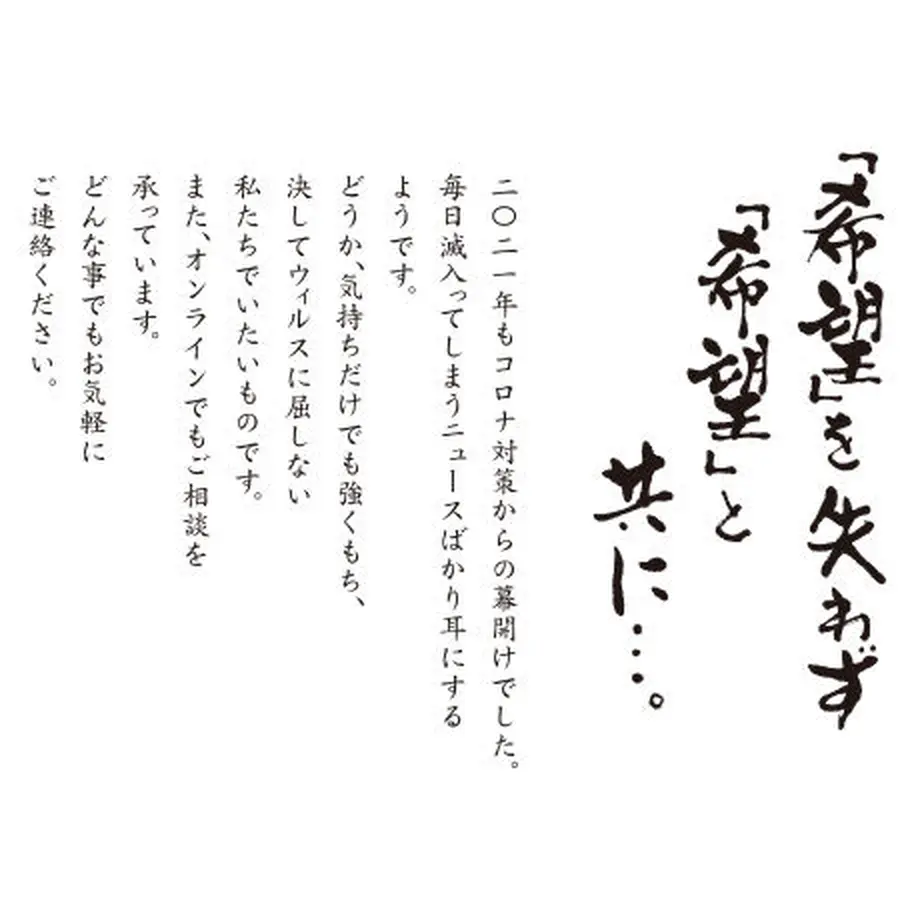 「希望」を失わず
「希望」と
共に…。
二〇二一年もコロナ対策からの幕開けでした。
毎日滅入ってしまうニュースばかり耳にする
ようです。
どうか、気持ちだけでも強くもち、
決してウィルスに屈しない
私たちでいたいものです。
また、オンラインでもご相談を
承っています。
どんな事でもお気軽に
ご連絡ください。